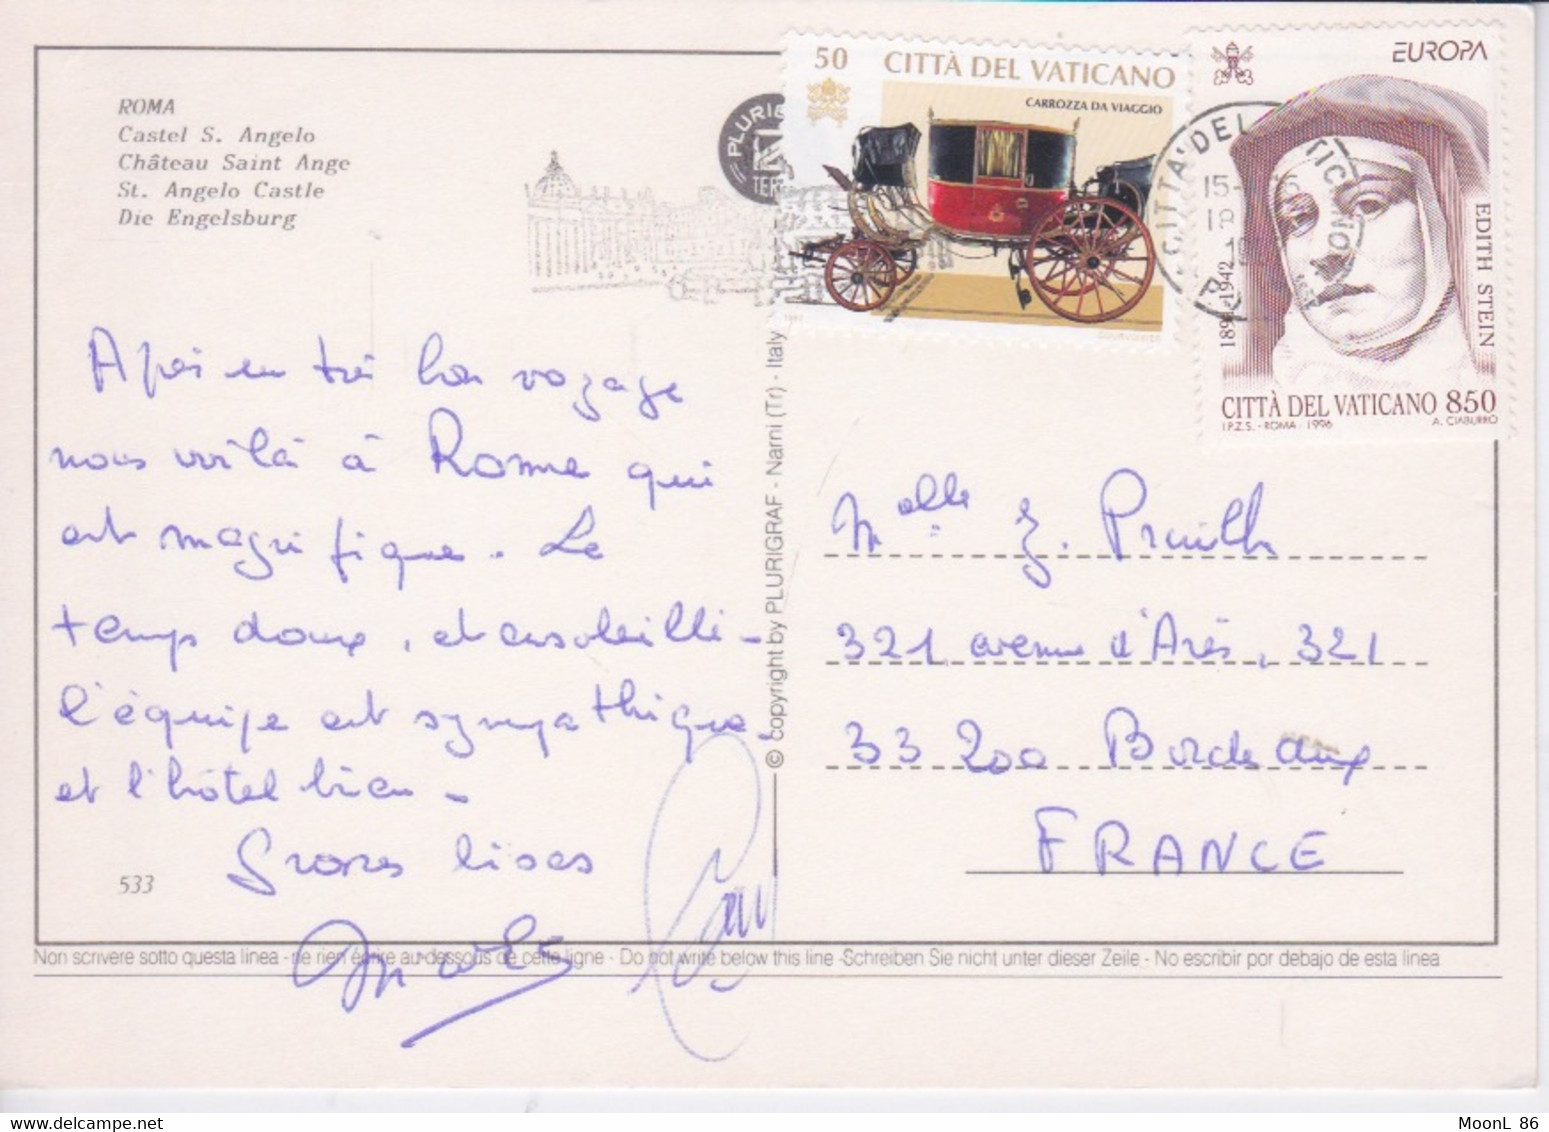 ROMA
Castel S. Angelo
Château Saint Ange
St. Angelo Castle
Die Engelsburg
PLURIG
TER
50 CITTÀ DEL VATICANO
CARROZZA DA VIAGGIO
CITTA' DEL
15-
18
19
EUROPA
EDITH STEIN
1891-1942
CITTÀ DEL VATICANO 850
I.P.Z.S. - ROMA - 1996 A. CIABURRO
Après un très bon voyage
nous voilà à Rome qui
est magnifique. Le
temps doux, et ensoleillé -
l'équipe est sympathique -
et l'hôtel bien -
Grosses bises
533
© copyright by PLURIGRAF - Narni (Tr) - Italy
Melle
321, avenue d'Arès, 321
33 200 Bordeaux
FRANCE
Non scrivere sotto questa linea - ne rien écrire au-dessous de cette ligne - Do not write below this line - Schreiben Sie nicht unter dieser Zeile - No escribir por debajo de esta linea
MoonL 86